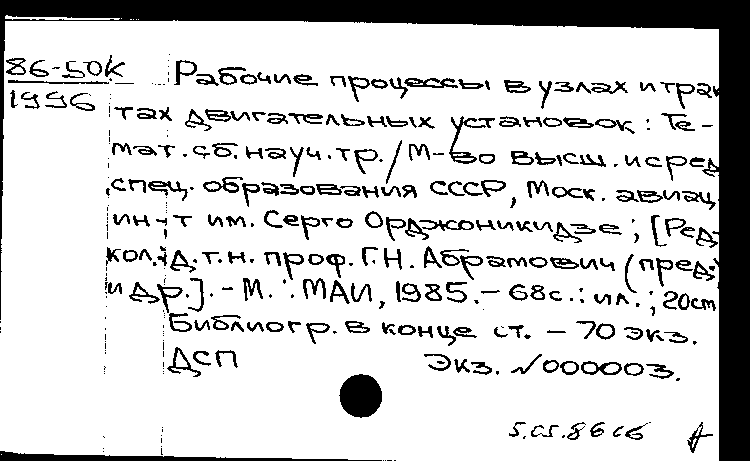 86-50К
1996
Рабочие процессы в узлах и трак
тах двигательных установок: Те-
мат. сб. науч. тр. / М-во высш. и сред
спец. образования СССР, Моск. авиац
ин-т им. Серго Орджоникидзе; [Ред-
кол.: д.т.н. проф. Г.Н. Абрамович (пред.)
и др.]. - М.: МАИ, 1985. - 68с.: ил.; 20cm
Библиогр. в конце ст. - 70 экз.
ДСП Экз. №000003.